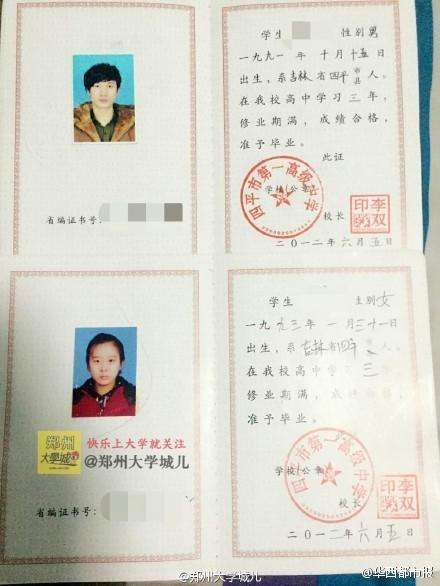 学生 性别男
一九九一年十月十五日
出生，系吉林省四平市县人。
在我校高中学习三年，
修业期满，成绩合格，
准予毕业。
此证
四平市第一高级中学
学校(公章)
校长
李双印
省编证书号：
二〇一二年六月五日
学生 性别女
一九九三年一月三十一日
出生，系吉林省四平 人。
在我校高中学习三年，
修业期满，成绩合格，
准予毕业。
四平市第一高级中学
学校(公章)
校长
李双印
郑州
大学城
快乐上大学就关注
@郑州大学城儿
省编证书号：
二〇一二年六月五日
@郑州大学城儿
@华西都市报